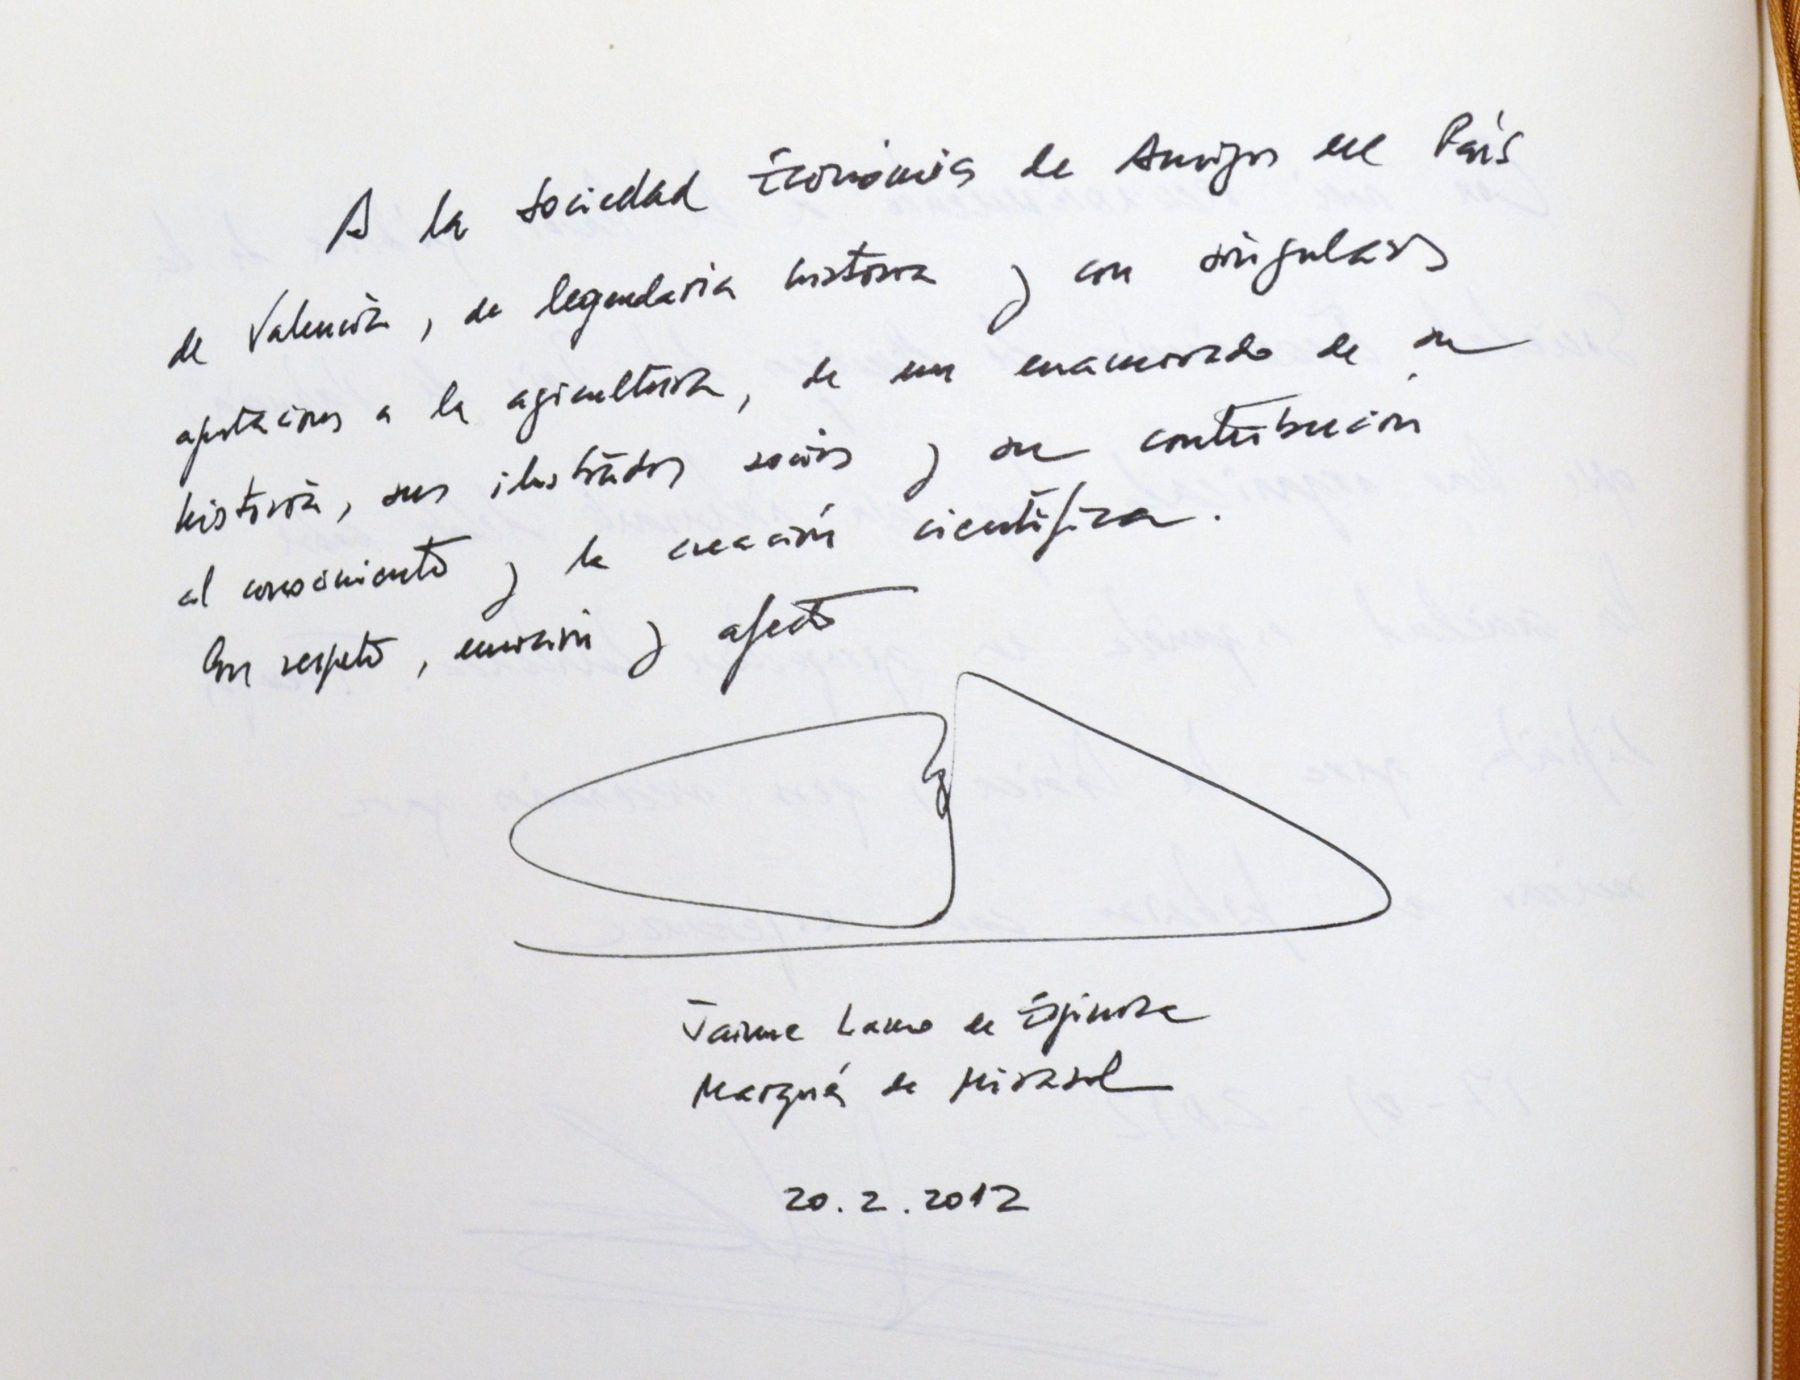 A la Sociedad Económica de Amigos del País
de Valencia, de legendaria historia y con singulares
aportaciones a la agricultura, de un enamorado de su
historia, sus ilustrados socios y su contribución
al conocimiento y la creación científica.
Con respeto, emoción y afecto
Jaime Lamo de Espinosa
Marqués de Mirasol
20.2.2012